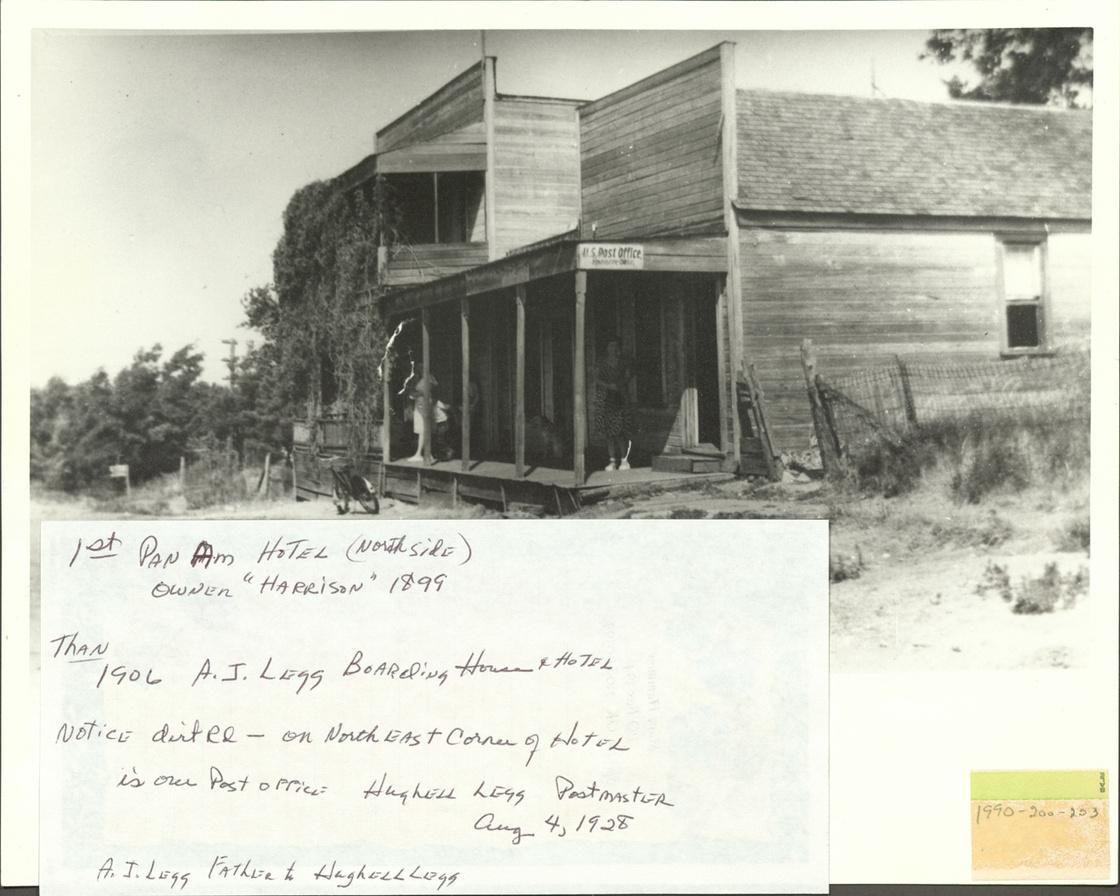 U.S. Post Office
1st PAN Am HOTEL (North side)
OWNER "HARRISON" 1899
Than
1906 A.J. Legg Boarding House & HOTEL
Notice dirt Rd — on North EAST Corner of Hotel
is our Post office Hughell Legg Postmaster
Aug 4, 1928
A.J. Legg Father to Hughell Legg
1990-200-253